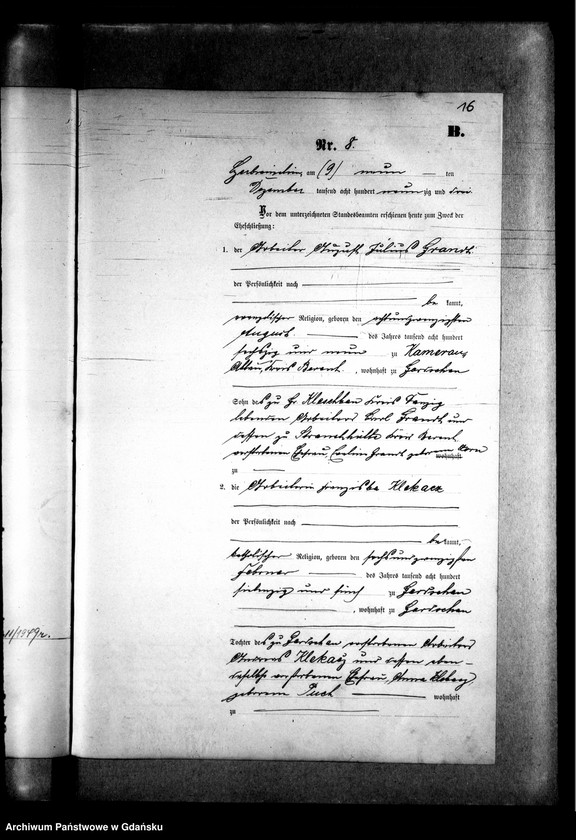 16
B.
Nr. 8.
am (9) neun ten
Dezember tausend acht hundert neunzig und drei
Vor dem unterzeichneten Standesbeamten erschienen heute zum Zweck der
Eheschließung:
1. der Arbeiter August Julius Grandt
der Persönlichkeit nach
be kannt,
evangelischer Religion, geboren den achtundzwanzigsten
August des Jahres tausend acht hundert
sechszig und neun zu Kamerau
Kreis Berent, wohnhaft zu
Sohn des zu Gr. Kleschkau Kreis Danzig
lebenden Arbeiters Carl Grandt und
dessen zu Kreis Berent
verstorbenen Ehefrau, Grandt geborenen
wohnhaft
zu
2. die Arbeiterin Franziska Klekacz
der Persönlichkeit nach
be kannt,
katholischer Religion, geboren den sechsundzwanzigsten
Februar des Jahres tausend acht hundert
siebenzig und fünf zu
, wohnhaft zu
Tochter des zu verstorbenen Arbeiters
Andreas Klekacz und dessen eben-
daselbst verstorbenen Ehefrau, Anna
geborenen Puch wohnhaft
zu
11/1949r.
Archiwum Państwowe w Gdańsku